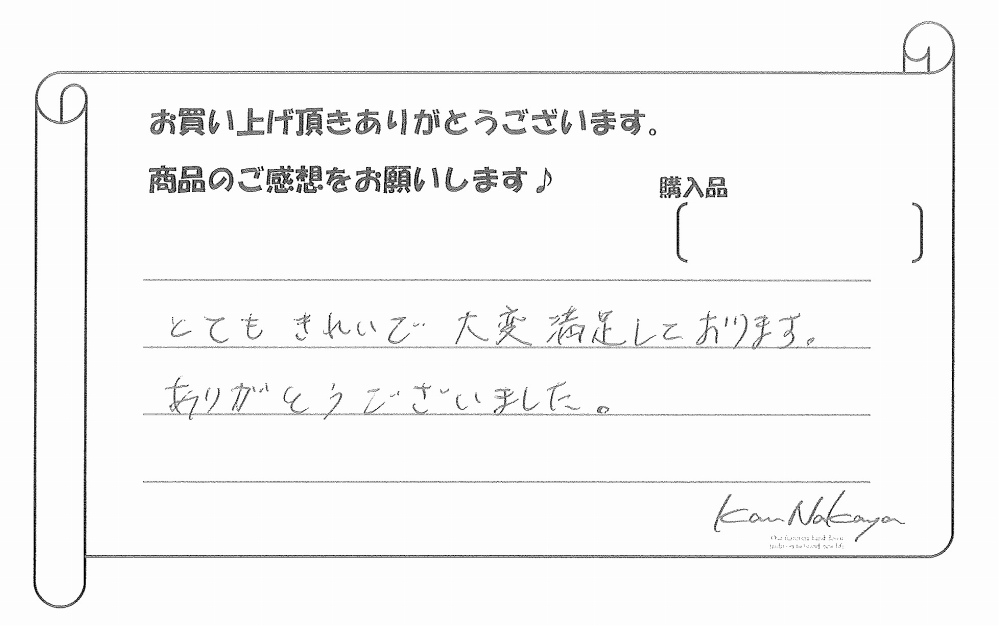 お買い上げ頂きありがとうございます。
商品のご感想をお願いします♪
購入品
とてもきれいで 大変満足しております。
ありがとうございました。
Kan Nakaya